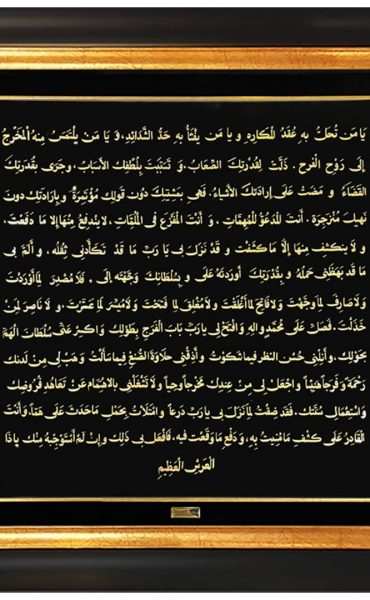 یَا مَن تُحَلُّ بِهِ عُقَدُ الْمَکَارِهِ وَ یَا مَن یُفْثَأُ بِهِ حَدُّ الشَّدَائِدِ، وَ یَا مَنْ یُلْتَمَسُ مِنْهُ الْمَخْرَجُ
إِلَى رَوْحِ الْفَرَجِ. ذَلَّتْ لِقُدْرَتِكَ الصِّعَابُ، وَ تَسَبَّبَتْ بِلُطْفِكَ الْأَسْبَابُ، وَجَرَى بِقُدْرَتِكَ
الْقَضَاءُ وَ مَضَتْ عَلَى إِرَادَتِكَ الْأَشْيَاءُ. فَهِيَ بِمَشِيَّتِكَ دُونَ قَوْلِكَ مُؤْتَمِرَةٌ، وَ بِإِرَادَتِكَ دُونَ
نَهْيِكَ مُنْزَجِرَةٌ. أَنْتَ الْمَدْعُوُّ لِلْمُهِمَّاتِ، وَ أَنْتَ الْمَفْزَعُ فِي الْمُلِمَّاتِ، لَا يَنْدَفِعُ مِنْهَا إِلَّا مَا دَفَعْتَ،
وَ لَا يَنْكَشِفُ مِنْهَا إِلَّا مَا كَشَفْتَ وَ قَدْ نَزَلَ بِي يَا رَبِّ مَا قَدْ تَكَأَّدَنِي ثِقْلُهُ، وَ أَلَمَّ بِي
مَا قَدْ بَهَظَنِي حَمْلُهُ وَ بِقُدْرَتِكَ أَوْرَدْتَهُ عَلَيَّ وَ بِسُلْطَانِكَ وَجَّهْتَهُ إِلَيَّ. فَلَا مُصْدِرَ لِمَا أَوْرَدْتَ
وَلَا صَارِفَ لِمَا وَجَّهْتَ وَلَا فَاتِحَ لِمَا أَغْلَقْتَ وَلَا مُغْلِقَ لِمَا فَتَحْتَ وَلَا مُيَسِّرَ لِمَا عَسَّرْتَ، وَ لَا نَاصِرَ لِمَنْ
خَذَلْتَ. فَصَلِّ عَلَى مُحَمَّدٍ وَ الِهِ وَ افْتَحْ لِي يَا رَبِّ بَابَ الْفَرَجِ بِطَوْلِكَ وَ اكْسِرْ عَنِّي سُلْطَانَ الْهَمِّ
بِحَوْلِكَ، وَ أَنِلْنِي حُسْنَ النَّظَرِ فِيمَا شَكَوْتُ وَ أَذِقْنِي حَلَاوَةَ الصُّنْعِ فِيمَا سَأَلْتُ وَ هَبْ لِي مِنْ لَدُنْكَ
رَحْمَةً وَ فَرَجاً هَنِيئاً وَ اجْعَلْ لِي مِنْ عِنْدِكَ مَخْرَجاً وَحِيّاً وَ لَا تَشْغَلْنِي بِالِاهْتِمَامِ عَنْ تَعَاهُدِ فُرُوضِكَ
وَ اسْتِعْمَالِ سُنَّتِكَ. فَقَدْ ضِقْتُ لِمَا نَزَلَ بِي يَا رَبِّ ذَرْعاً وَ امْتَلَأْتُ بِحَمْلِ مَا حَدَثَ عَلَيَّ هَمّاً، وَ أَنْتَ
الْقَادِرُ عَلَى كَشْفِ مَا مُنِيتُ بِهِ، وَ دَفْعِ مَا وَقَعْتُ فِيهِ، فَافْعَلْ بِي ذَلِكَ وَ إِنْ لَمْ أَسْتَوْجِبْهُ مِنْكَ يَا ذَا
الْعَرْشِ الْعَظِيمِ